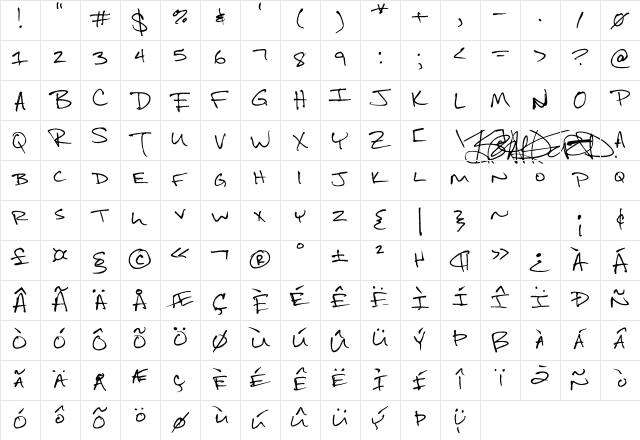 ! " # $ % & ' ( ) * + , - . / Ø
1 2 3 4 5 6 7 8 9 : ; < = > ? @
A B C D E F G H I J K L M N O P
Q R S T U V W X Y Z [ \ A
B C D E F G H I J K L M N O P Q
R S T U V W X Y Z { | } ~ ¡ ¢
£ ¤ § © « ¬ ® ° ± ² ¶ » ¿ À Á
Â Ã Ä Å Æ Ç È É Ê Ë Ì Í Î Ï Ð Ñ
Ò Ó Ô Õ Ö Ø Ù Ú Û Ü Ý Þ B À Á Â
Ã Ä Å Æ ç È É Ê Ë Ì Í Î Ï Ñ ò
ó ô õ ö ø ù ú û ü ý Þ ÿ